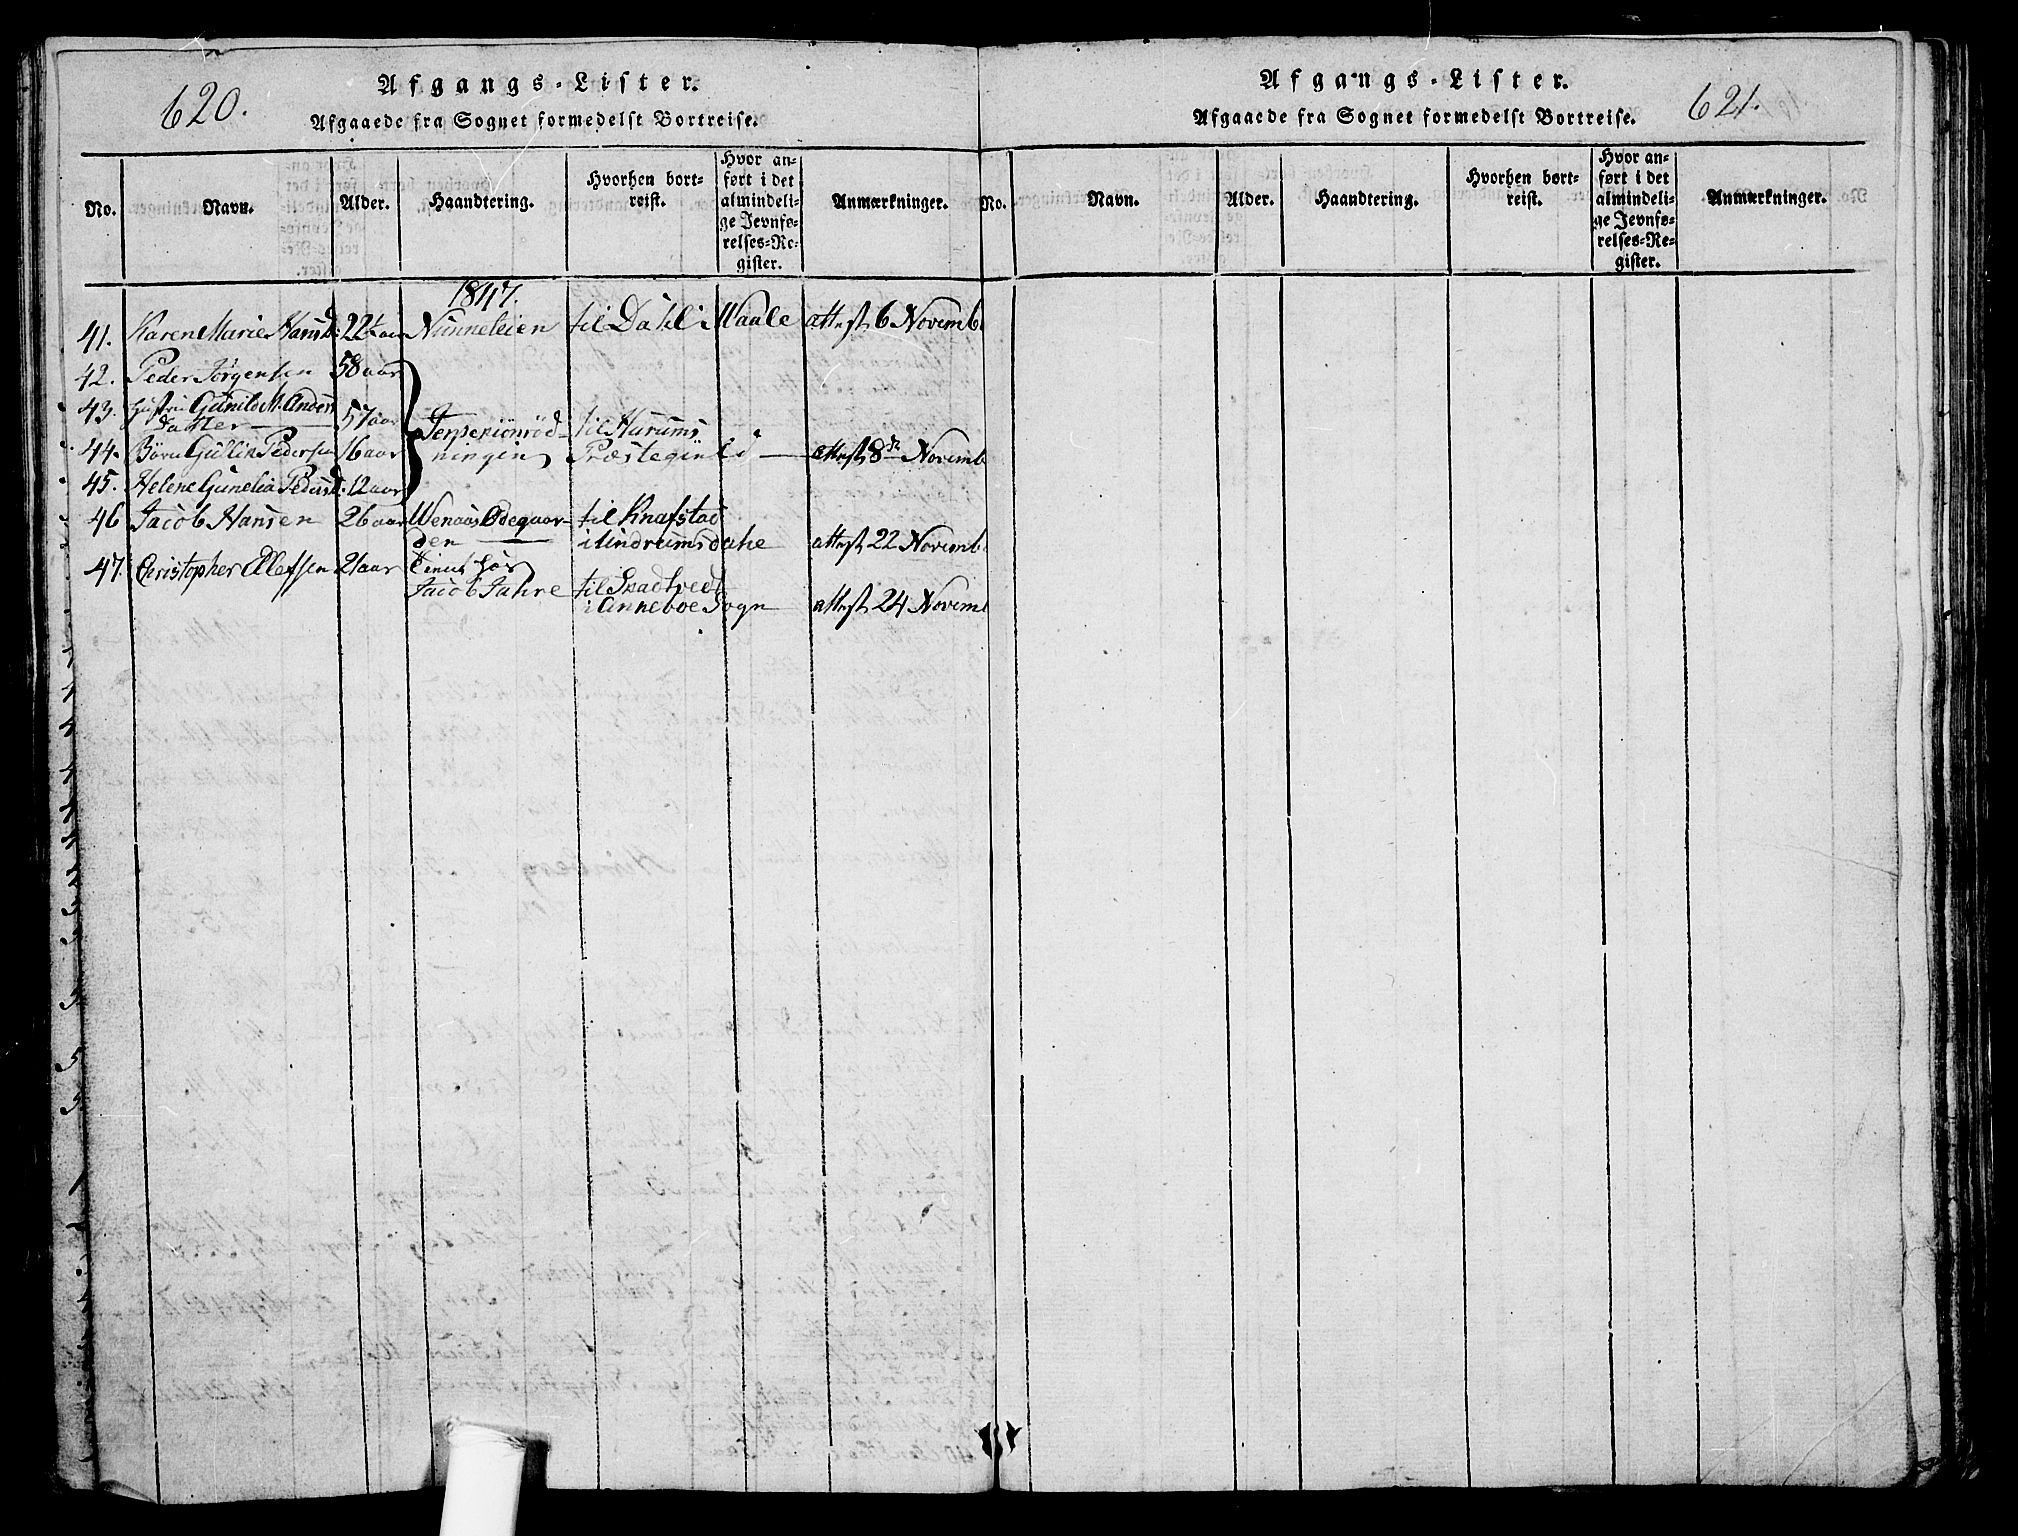 620.
Afgangs-Lister.
Afgaaede fra Sognet formedelst Bortreise.
No. Navn. Alder. Haandtering. Hvorhen bortreist. Hvor anført i det almindelige Jevnførelses-Register. Anmærkninger.
1847.
41. Karen Marie Hansd: 22 aar Nunneleien til Dahl i Waale attest 6 Novemb
42. Peder Jörgensen 58 aar
43. Hustru Gunild M. Anders
datter 57 aar Jerpekiönröd- til Hurums
44. Börn Gullik Pedersen 16 aar ningen Præstegield attest 8de Novemb
45. Helene Gunelia Pedersd: 12 aar
46 Jacob Hansen 26 aar Wenaas Ödegaar- til Knafstad
den i Undrumsdahe attest 22 Novemb
47. Christopher Ollefsen 21 aar tient hos
Jacob Jahre til
i Anneboe Sogn attest 24 Novemb
621.
Afgangs-Lister.
Afgaaede fra Sognet formedelst Bortreise.
No. Navn. Alder. Haandtering. Hvorhen bortreist. Hvor anført i det almindelige Jevnførelses-Register. Anmærkninger.